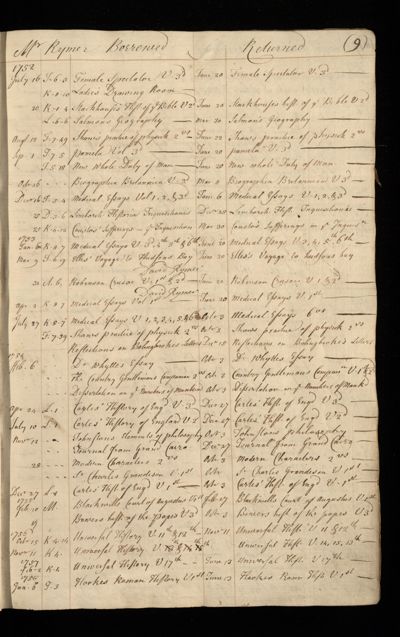 Mr Rymer Borrowed Returned (9)
1752
July 16 F.6.8 Female Spectator V. 3d June 20 Female Spectator V. 3d
K.8.10 Ladies Drawing Room
20 K.1.4 Stackhouse's Hist of ye Bible V 2d June 20 Stackhouses hist of ye Bible V 2d
L.5.6 Salmon's Geography Nov 30 Salmon's Geography
Aug 10 F.7.49 Shaw's practice of physick 2 vs June 22 Shaw's practice of physick 2 vs
Sep 1 F.7.5 Pamela Vol. 3d June 20 pamela V. 3d
F.5.18 New Whole Duty of Man June 20 New whole Duty of Man
Biographia Britannica V. 3d Nov Biographia Britannica V 3d
Medical Essays Vol 1. 2. & 3d June 6 Medical Essays V. 1, 2, & 3d
20 Limborch Historia Inquisitionis Limborch Hist. Inquisitionis
20 Couston's Sufferings in ye Inquisition Nov 30 Couston's Sufferings in ye Inquisn
1753
Jan 6 K.8.7 Medical Essays V. 3d 4th 5th & 6th June 20 Medical Essays V. 3, 4, 5. 6th
Nov 9 Ellis' Voyage to Hudsons Bay June 20 Ellis's Voyage to hudsons bay
David Rymer
20 A.6. Robinson Crusoe V. 1st & 2d June 20 Robinson Crusoe V. 1 & 2d
David Rymer
Apr 2 K.8.7 Medical Essays Vol 1st June 20 Medical Essays V. 1st
July 27 K.8.7 Medical Essays V. 1, 2, 3, 4, 5 & 6 Oct 3 Medical Essays 6 vs
F.7.39 Shaws practice of physick 2 vs Oct 3 Shaws practice of physick 2 vs
Reflections on Bolingbrokes Letters Dec 15 Reflections on Bolingbroke's Letters
1754
Feb. 6 Dr Whytts Essay Oct 3 Dr Whytts Essay
The Country Gentlemans Companion 2 vs Oct 2 Country Gentlemans Compann V. 1 & 2
Dissertation on ye Numbers of Mankind Oct 3 Dissertation on ye Numbers of Mankd
Apr 24 L.1 Carte's History of Eng. V. 3d Dec 27 Carte's Hist. of Engd V 3d
July 10 L.1 Carte's History of England V. 2 Dec 27 Carte's Hist. of Engd V 2d
Nov 12 Johnstons Elements of philosophy Oct 3 Johnstons Philosophy
Journal from Grand Cairo Dec 27 Journal from Grand Cairo
28 Modern Characters 2 vs Oct 3 Modern Characters 2 vs
Sr Charles Grandison V. 1st Oct Sr Charles Grandison V. 1st
Dec 27 L.1 Carte's Hist of Engd V. 1st Oct 3 Cartes Hist. of Engd V. 1st
1755
Feb 10 M. Blackwells Court of Augustus V 1st Feb 27 Blackwells Court of Augustus V 1st
Bowers hist. of the popes V 3d Oct 3 Bowers hist of the popes V 3d
Oct 15 K.4.14 Universal History V. 11th & 12th Nov 11 Universal Hist. V 11 & 12th
Nov 11 K 4. Universal History V. Universal Hist. V. 14, 15, 13th
1757
Feb 2 K 4 Universal History V 17th June 13 Universal Hist. V. 17th
1758
Jan 6 F.3 Hookes Roman History V 1st June 13 Hookes Rom. Hist V. 1st